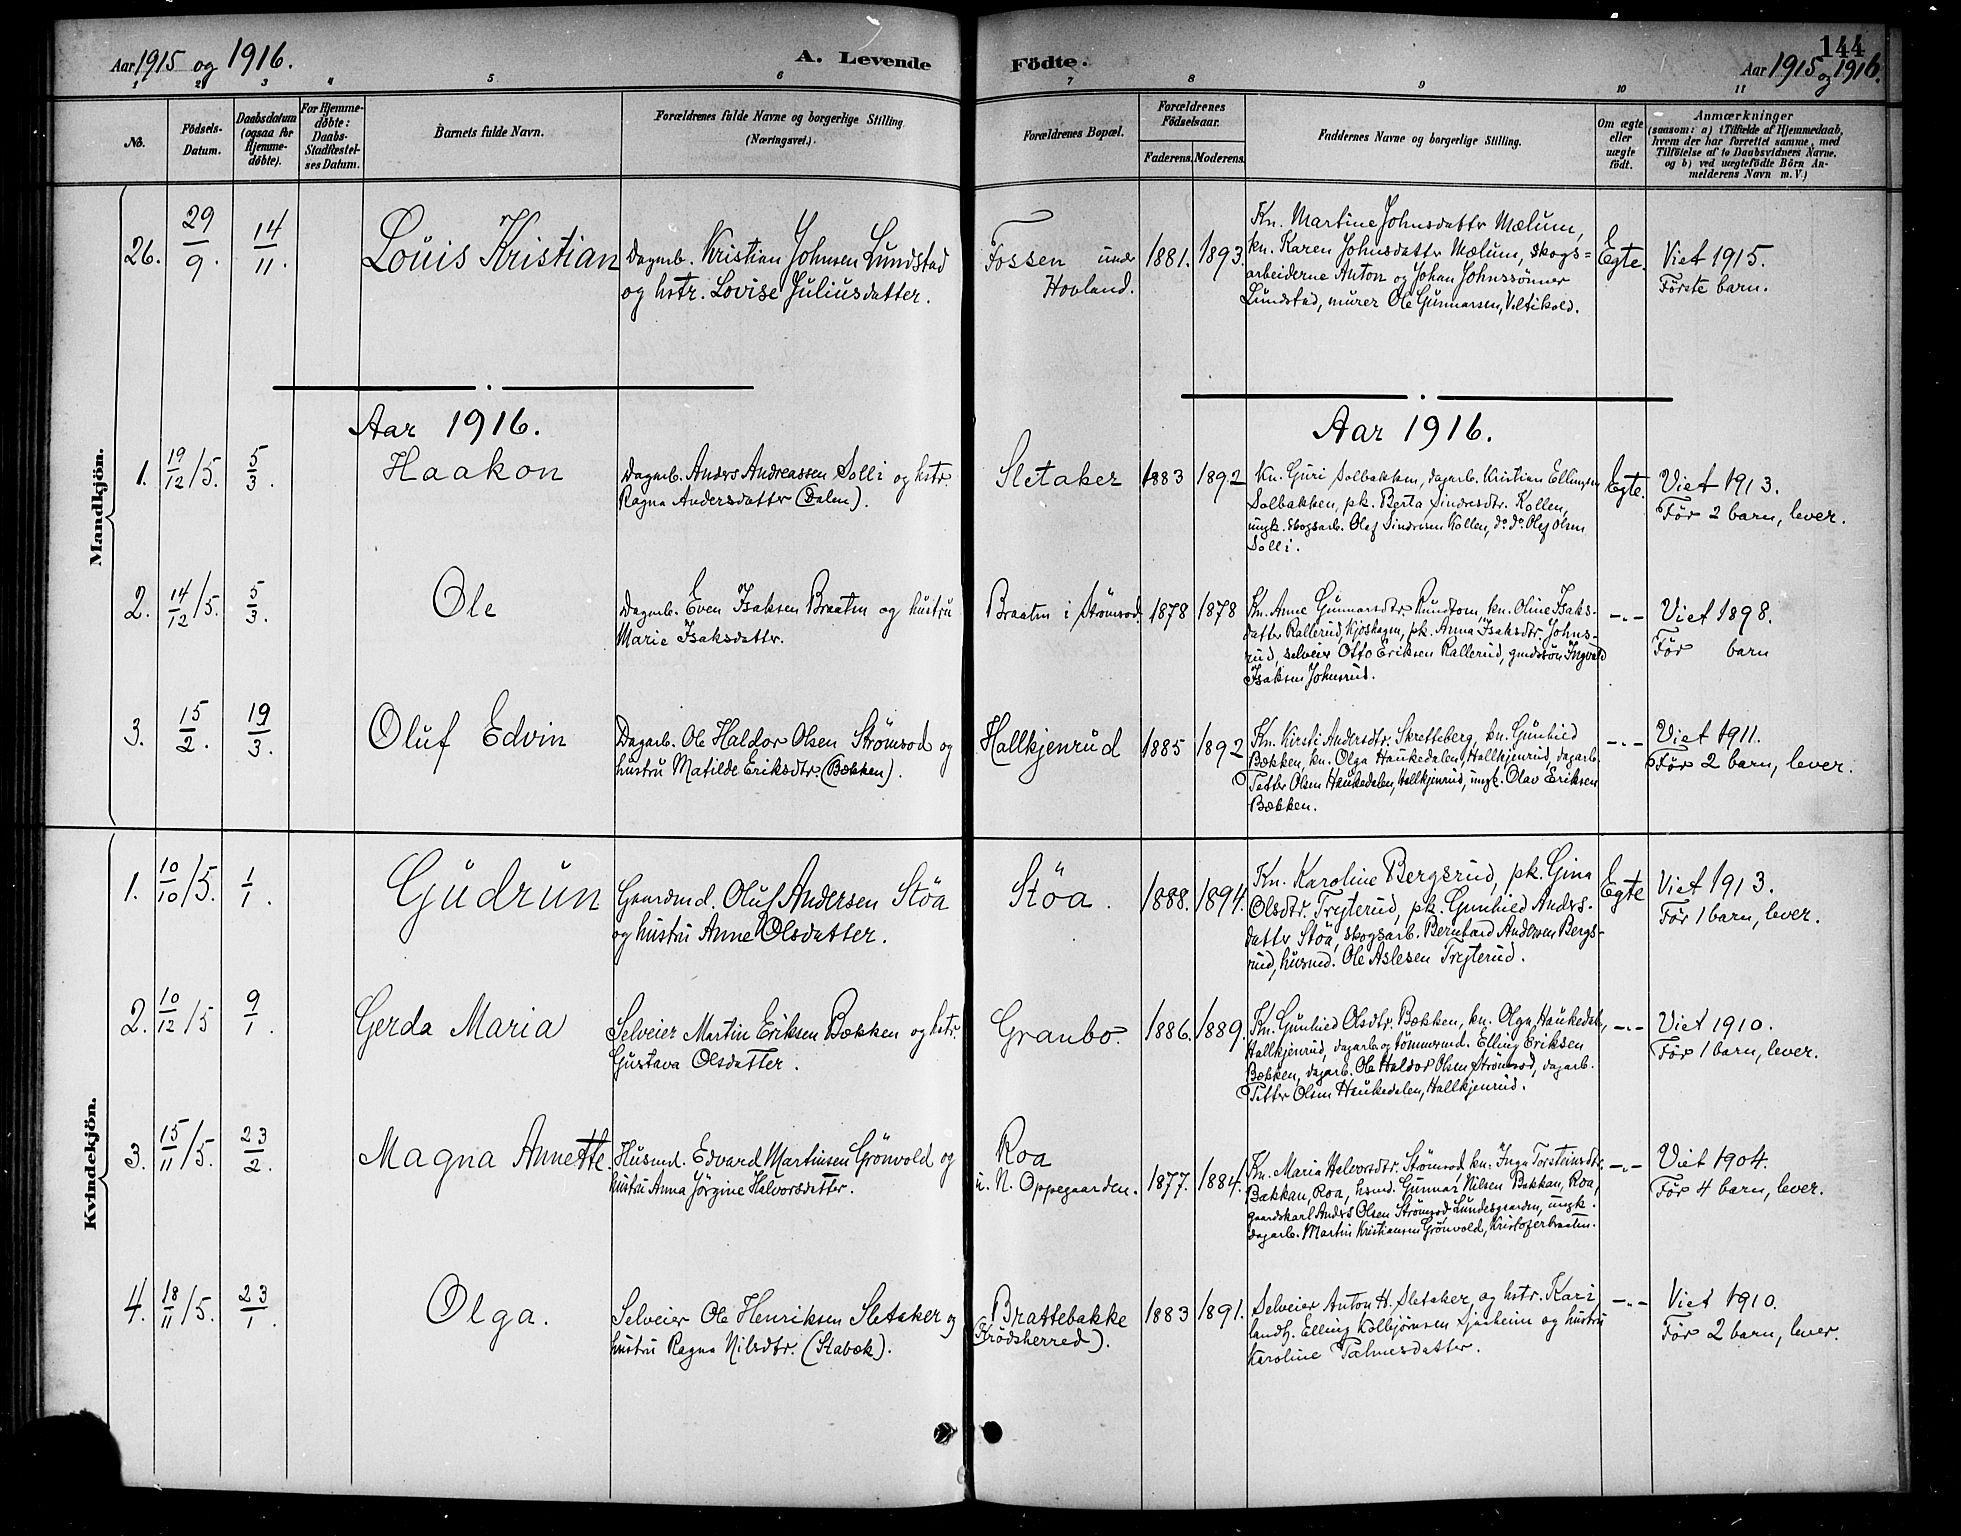 Aar 1915 og 1916.
A. Levende
Födte.
144
Aar 1915 og 1916.
1 2 3 4 5 6 7 8 9 10 11
No.
Födsels-
Datum.
Daabsdatum
(ogsaa for
Hjemme-
döbte).
For Hjemme-
döbte:
Daabs-
Stadfæstel-
ses Datum.
Barnets fulde Navn.
Forældrenes fulde Navne og borgerlige Stilling
(Næringsvei).
Forældrenes Bopæl.
Forældrenes
Födselsaar.
Faderens.
Moderens.
Faddernes Navne og borgerlige Stilling.
Om ægte
eller
uægte
födt.
Anmærkninger
(saasom: a) i Tilfælde af Hjemmedaab,
hvem der har forrettet samme, med
Tilföielse af to Daabsvidners Navne,
og b) ved uægtefödte Börn An-
melderens Navn m. V.)
Mandkjön.
26.
29/9.
14/11.
Louis Kristian
Dagarb. Kristian Johnsen Lundstad
og hstr. Lovise Juliusdatter.
Fossen under
Hovland.
1881.
1893.
Kn. Martine Johnsdattr Mælum,
kn. Karen Johnsdattr Mælum, skogs=
arbeiderne Anton og Johan Johnssönner
Lundstad, murer Ole Gunnarsen, Veltikold.
Egte.
Viet 1915.
Förste barn.
Aar 1916.
Aar 1916.
1.
19/12/15.
5/3.
Haakon
Dagarb. Anders Andreassen Solli og hstr.
Ragna Andersdatter (Dalen).
Sletaker
1883
1892
Kn. Guri Solbakken, dagarb. Kristian Ellingsen
Solbakken, pk. Berta Sindresdtr. Kollen,
ungk. skogsarb. Olaf Sindresen Kollen, do do Olaf Olsen
Solli.
Egte.
Viet 1913.
Før 2 barn, lever.
2.
14/12/15.
5/3.
Ole
Dagarb. Even Isaksen Braaten og hustru
Marie Isaksdatter.
Braaten i Strömsod
1878
1878
Kn. Anne Gunnarsdtr. Rundtom, kn. Oline Isaks-
datter Rallerud, Kjoshagen, pk. Anna Isaksdtr. Johns-
rud, selveier Otto Eriksen Rallerud, gmdssön Ingvald
Isaksen Johnsrud.
-"-
Viet 1898.
Før barn
3.
15/2.
19/3.
Oluf Edvin
Dagarb. Ole Haldor Olsen Strömsod og
hustru Matilde Eriksdtr. (Bækken).
Hallkjenrud
1885
1892
Kn. Kirsti Andersdtr. Skretteberg, kn. Gunhild
Bækken, kn. Olga Haukedalen, Hallkjenrud, dagarb.
Petter Olsen Haukedalen, Hallkjenrud, ungk. Olav Eriksen
Bækken.
-"-
Viet 1911.
Før 2 barn, lever.
Kvindekjön.
1.
10/10/15.
1/1.
Gudrun
Gaardmd. Oluf Andersen Stöa
og hustru Anne Olsdatter.
Stöa.
1888.
1894.
Kn. Karoline Bergsrud, pk. Gina
Olsdtr. Tryterud, pk. Gunhild Anders-
datter Stöa, skogsarb. Bernhard Andersen Bergs-
rud, husmd. Ole Aslesen Tryterud.
Egte
Viet 1913.
Før 1 barn, lever.
2.
10/12/15
9/1.
Gerda Maria
Selveier Martin Eriksen Bækken og hstr.
Gustava Olsdatter.
Granbo.
1886.
1889.
Kn. Gunhild Olsdtr. Bækken, kn. Olga Haukedal,
Hallkjenrud, dagarb. og tömmermd. Elling Eriksen
Bækken, dagarb. Ole Haldor Olsen Strömsod, dagarb.
Petter Olsen Haukedalen, Hallkjenrud.
-"-
Viet 1910.
Før 1 barn, lever.
3.
15/11/15.
23/2.
Magna Annette.
Husmd. Edvard Martinsen Grönvold og
hustru Anna Jörgine Halvorsdatter.
Roa
u. N. Oppegaarden.
1877.
1884.
Kn. Maria Halvorsdtr. Strömsod, kn. Inga Torsteinsdtr.
Bakkan, Roa, husmd. Gunnar Nilsen Bakkan, Roa,
gaardskarl Anders Olsen Strömsod, Lundesgaarden, ungk.
dagarb. Martin Kristiansen Grönvold, Kristoferbraaten.
-"-
Viet 1904.
Før 4 barn, lever.
4.
18/11/15.
23/1.
Olga.
Selveier Ole Henriksen Sletaker og
hustru Ragna Nilsdtr. (Stavok).
Brattebakke
(Krödsherred).
1883
1891.
Selveier Anton H. Sletaker og hstr. Kari
landh. Elling Kolbjørnsen Ljøsheim og hustru
Karoline Talmesdatter.
-"-
Viet 1910.
Før 2 barn, lever.